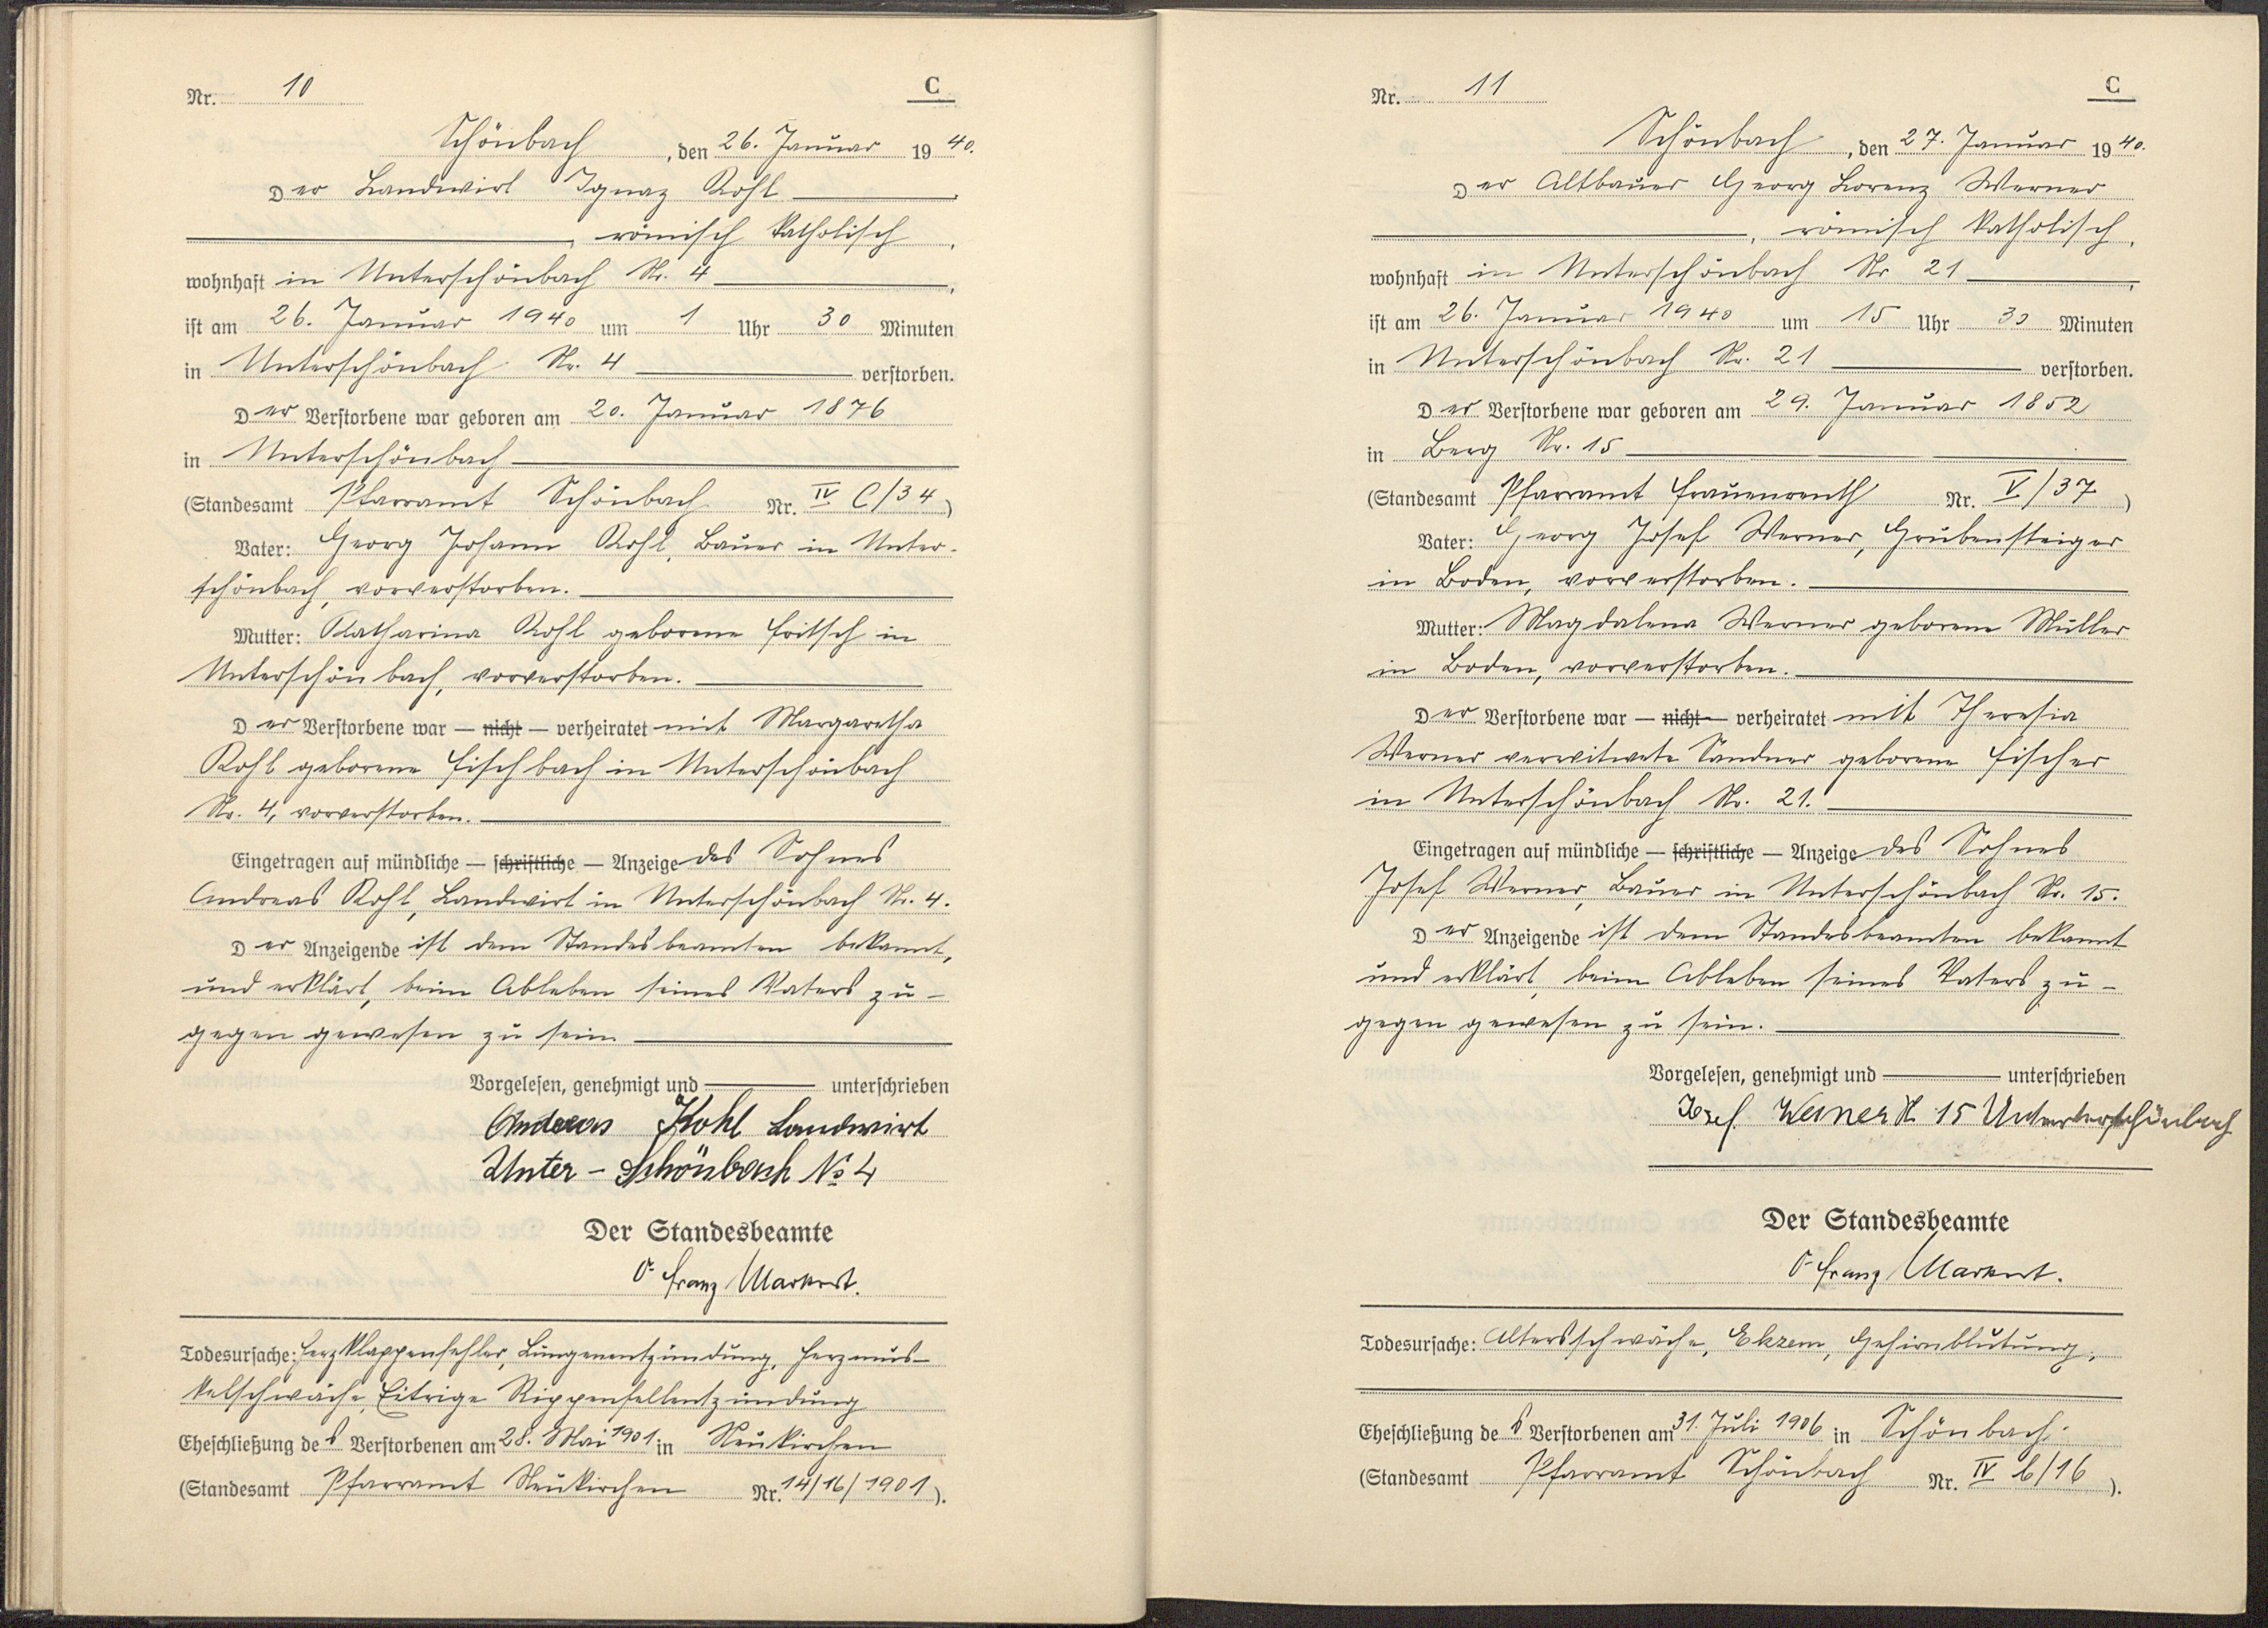 Nr. 10 C
Schönbach, den 26. Januar 1940.
Der Landwirt Ignaz Kohl
, römisch katholisch,
wohnhaft in Unterschönbach Nr. 4,
ist am 26. Januar 1940 um 1 Uhr 30 Minuten
in Unterschönbach Nr. 4 verstorben.
Der Verstorbene war geboren am 20. Januar 1876
in Unterschönbach
(Standesamt Pfarramt Schönbach Nr. IV C/34)
Vater: Georg Johann Kohl, Bauer in Unter-
schönbach, vorverstorben.
Mutter: Katharina Kohl geborene Fritsch in
Unterschönbach, vorverstorben.
Der Verstorbene war — nicht — verheiratet mit Margaretha
Kohl geborene Fischbach in Unterschönbach
Nr. 4, vorverstorben.
Eingetragen auf mündliche — schriftliche — Anzeige des Sohnes
Andreas Kohl, Landwirt in Unterschönbach Nr. 4.
Der Anzeigende ist dem Standesbeamten bekannt,
und erklärt, beim Ableben seines Vaters zu-
gegen gewesen zu sein
Vorgelesen, genehmigt und unterschrieben
Andreas Kohl Landwirt
Unter-Schönbach No 4
Der Standesbeamte
Franz Markert.
Todesursache: Herzklappenfehler, Lungenentzündung, Herzmus-
kelschwäche, Eitrige Rippenfellentzündung
Eheschließung des Verstorbenen am 28. Mai 1901 in Neukirchen
(Standesamt Pfarramt Neukirchen Nr. 14/16/1901).
Nr. 11 C
Schönbach, den 27. Januar 1940.
Der Altbauer Georg Lorenz Werner
, römisch katholisch,
wohnhaft in Unterschönbach Nr 21,
ist am 26. Januar 1940 um 15 Uhr 30 Minuten
in Unterschönbach Nr. 21 verstorben.
Der Verstorbene war geboren am 29. Januar 1852
in Berg Nr. 15
(Standesamt Pfarramt Frauenreuth Nr. V/37)
Vater: Georg Josef Werner, Grubensteiger
in Boden, vorverstorben.
Mutter: Magdalena Werner geborene Müller
in Boden, vorverstorben.
Der Verstorbene war — nicht — verheiratet mit Theresia
Werner verwitwete Sandner geborene Fischer
in Unterschönbach Nr. 21.
Eingetragen auf mündliche — schriftliche — Anzeige des Sohnes
Josef Werner, Bauer in Unterschönbach Nr. 15.
Der Anzeigende ist dem Standesbeamten bekannt
und erklärt, beim Ableben seines Vaters zu-
gegen gewesen zu sein.
Vorgelesen, genehmigt und unterschrieben
Josef Werner N 15 Unterschönbach
Der Standesbeamte
Franz Markert.
Todesursache: Altersschwäche, Ekzem, Gehirnblutung,
Eheschließung des Verstorbenen am 31. Juli 1906 in Schönbach
(Standesamt Pfarramt Schönbach Nr. IV b/16).